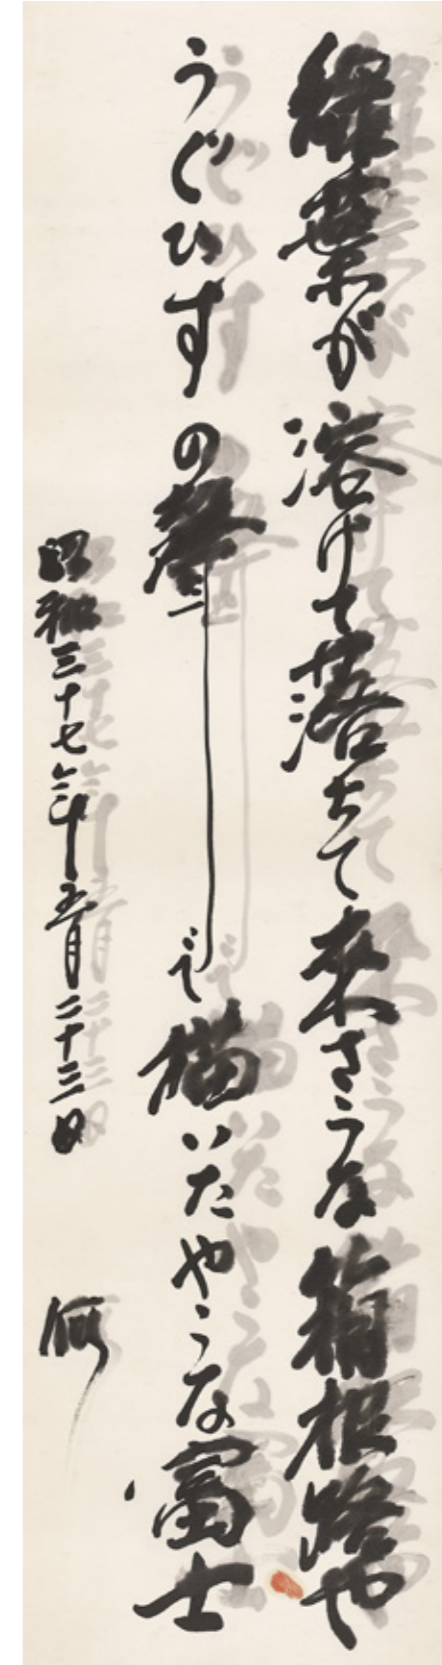 緑葉が溶けて落ちて来さうな箱根路や
うぐひすの聲で描いたやうな富士
昭和三十七年五月二十三日